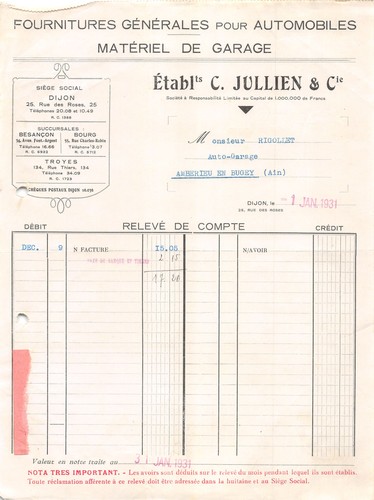 FOURNITURES GÉNÉRALES POUR AUTOMOBILES
MATÉRIEL DE GARAGE
SIÈGE SOCIAL
DIJON
25, Rue des Roses, 25
Téléphones 20.08 et 10.49
SUCCURSALES :
BESANÇON
BOURG
TROYES
134, Rue Thiers, 134
Téléphone 34.09
CHÈQUES POSTAUX DIJON
Établts C. JULLIEN & Cie
Société à Responsabilité Limitée au Capital de 1.000.000 de Francs
Monsieur RIGOLLET
Auto-Garage
AMBERIEU EN BUGEY (Ain)
DIJON, le 1 JAN. 1931
25, RUE DES ROSES
DÉBIT
RELEVÉ DE COMPTE
CRÉDIT
DEC. 9 N FACTURE 15.05
N/AVOIR
2 15
17 20
Valeur en notre traite au 31 JAN. 1931
NOTA TRES IMPORTANT. - Les avoirs sont déduits sur le relevé du mois pendant lequel ils sont établis.
Toute réclamation afférente à ce relevé doit être adressée dans la huitaine et au Siège Social.